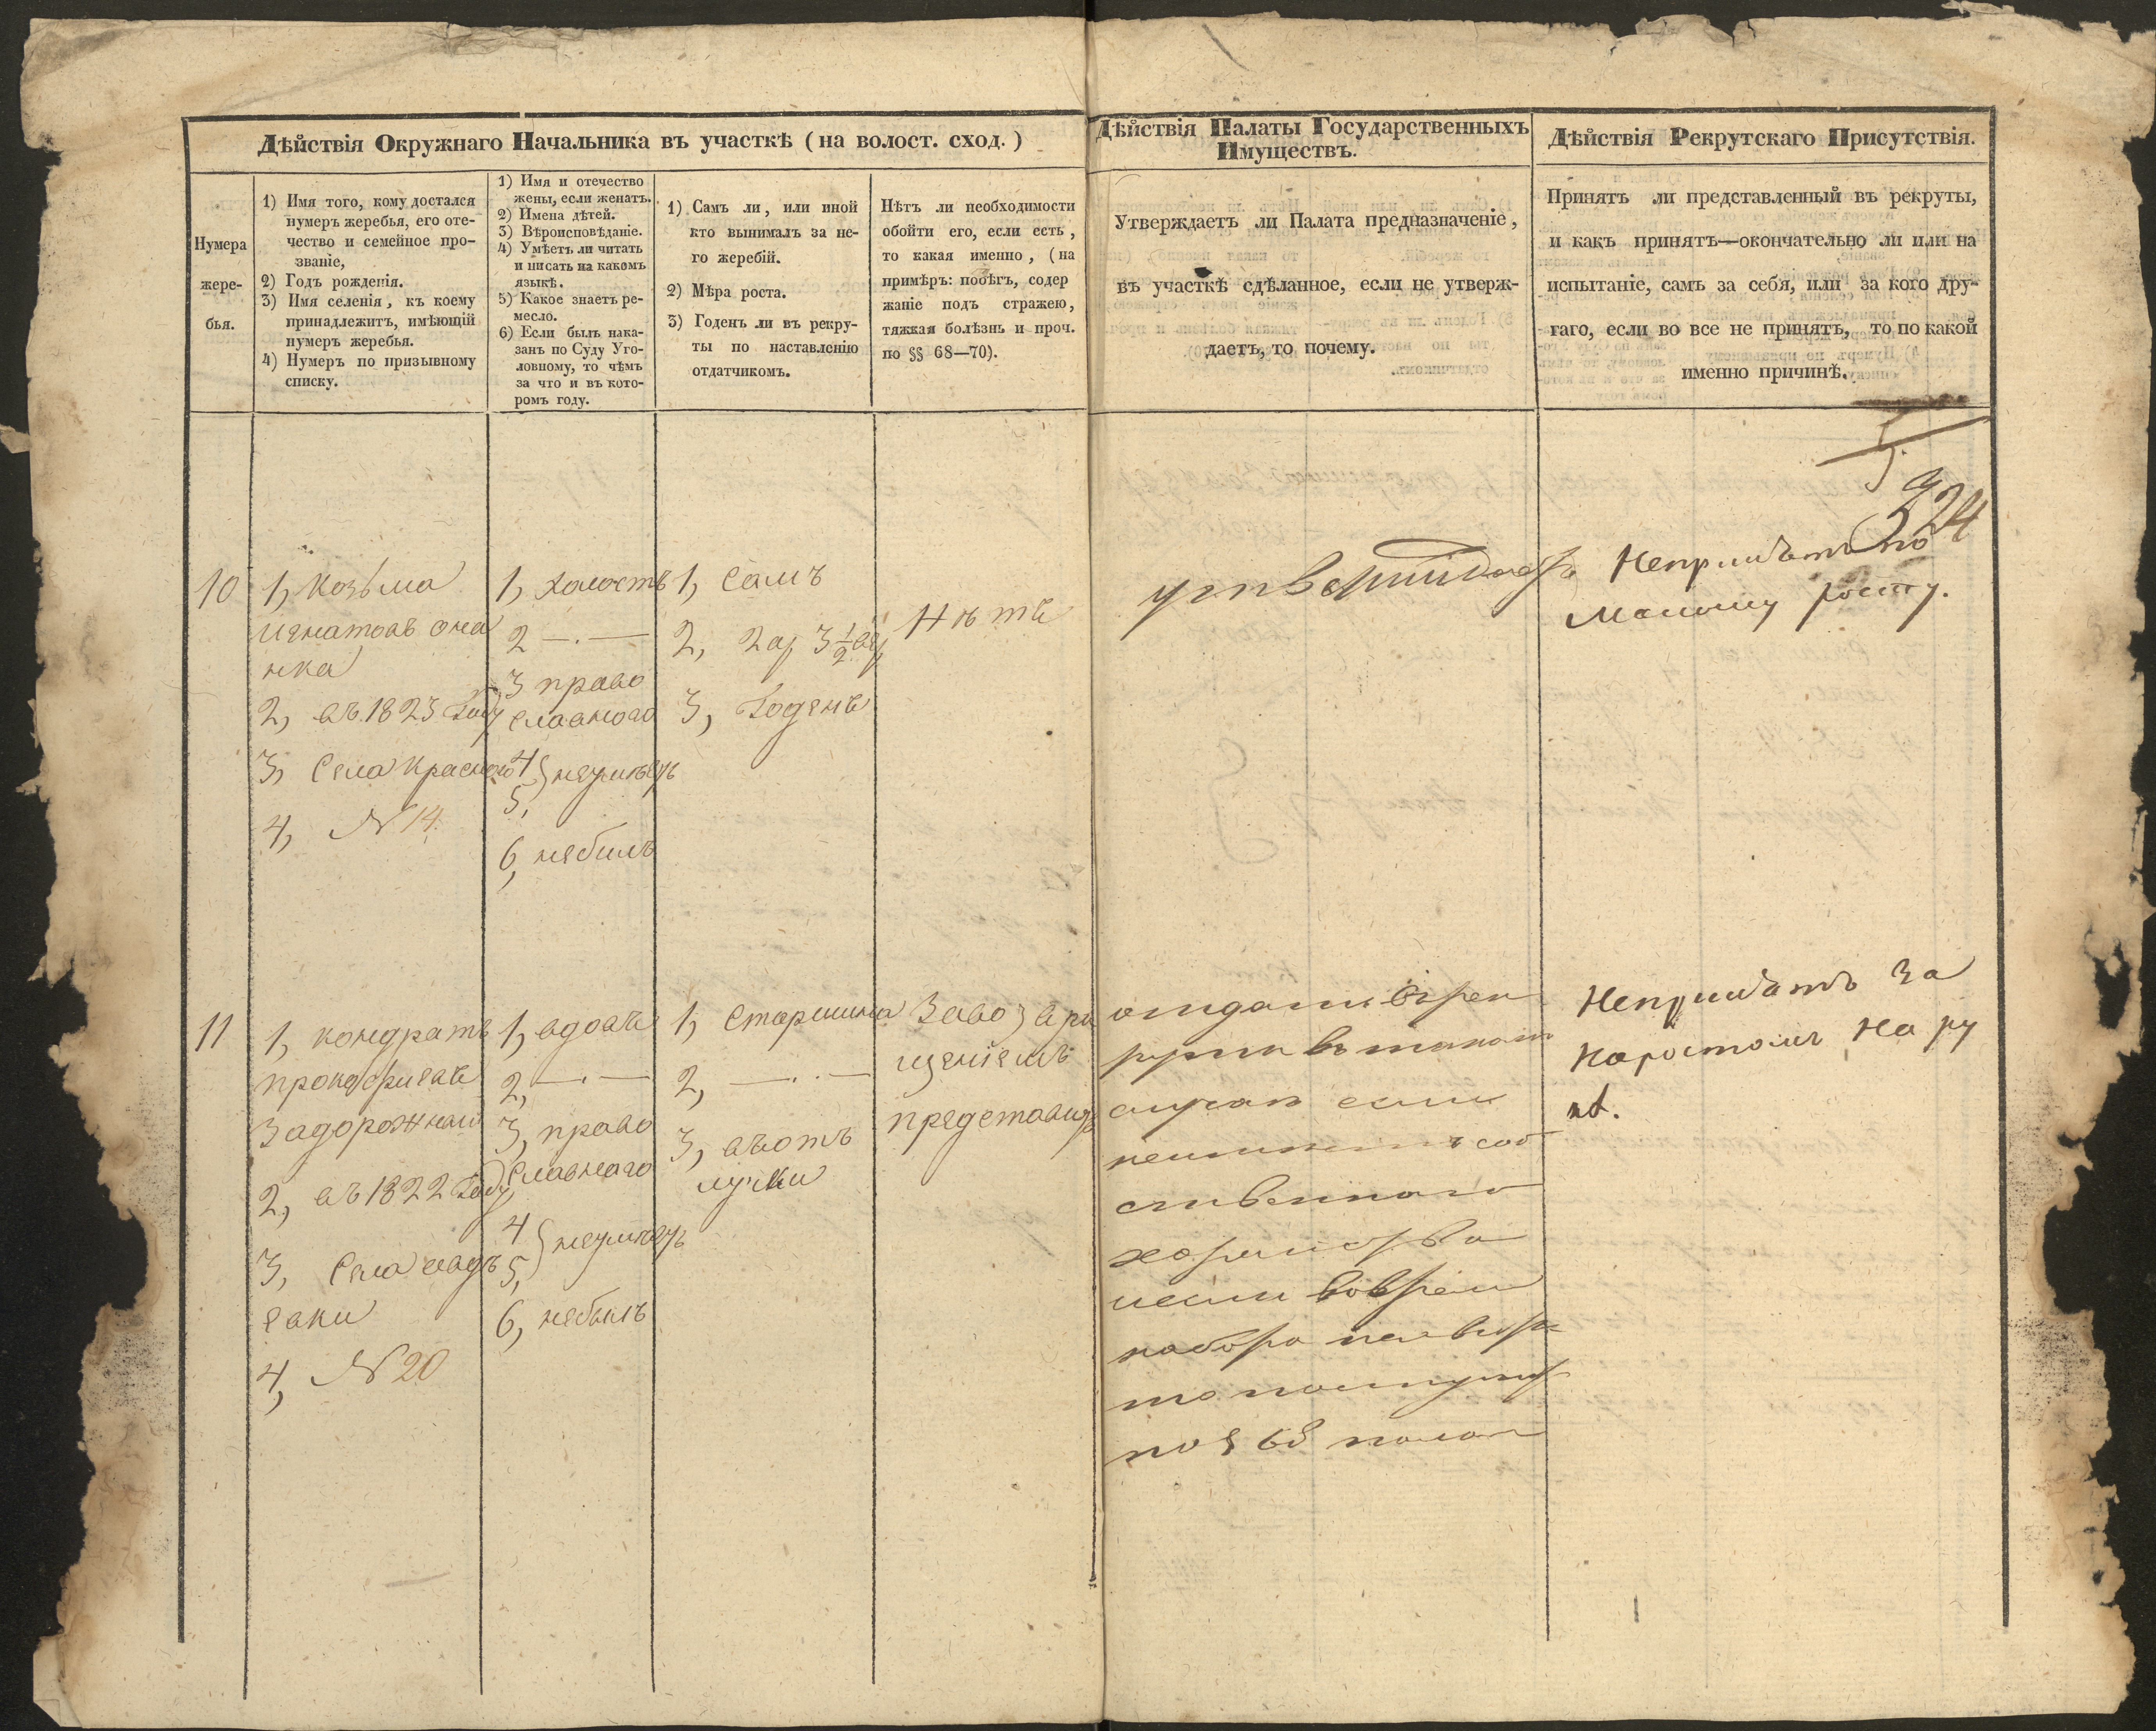 Дѣйствія Окружнаго Начальника въ участкѣ (на волост. сход.)
Нумера
жере-
бья.
1) Имя того, кому достался
нумеръ жеребья, его оте-
чество и семейное про-
званіе,
2) Годъ рожденія.
3) Имя селенія, къ коему
принадлежитъ, имѣющій
нумеръ жеребья.
4) Нумеръ по призывному
списку.
1) Имя и отечество
жены, если женатъ.
2) Имена дѣтей.
3) Вѣроисповѣданіе.
4) Умѣетъ ли читать
и писать на какомъ
языкѣ.
5) Какое знаетъ ре-
месло.
6) Если былъ нака-
занъ по Суду Уго-
ловному, то чѣмъ
за что и въ кото-
ромъ году.
1) Самъ ли, или иной
кто вынималъ за не-
го жеребій.
2) Мѣра роста.
3) Годенъ ли въ рекру-
ты по наставленію
отдатчикомъ.
Нѣтъ ли необходимости
обойти его, если есть,
то какая именно, (на
примѣръ: побѣгъ, содер
жаніе подъ стражею,
тяжкая болѣзнь и проч.
по §§ 68—70).
Дѣйствія Палаты Государственныхъ
Имуществъ.
Утверждаетъ ли Палата предназначеніе,
въ участкѣ сдѣланное, если не утверж-
даетъ, то почему.
Дѣйствія Рекрутскаго Присутствія.
Принятъ ли представленный въ рекруты,
и какъ принятъ—окончательно ли или на
испытаніе, самъ за себя, или за кого дру-
гаго, если во все не принятъ, то по какой
именно причинѣ.
924
10
1, Козьма
Игнатовъ
2, въ 1823 Году
3, Села Красного
4, № 14.
1, холостъ
2 —.—
3 право
славного
4
5, } неумѣетъ
6, небылъ
1, Самъ
2, 2 ар 3 1/2 вер
3, Годенъ
Нѣтъ
Непринятъ по
Малому росту.
11
1, Кондратъ
Прокофиевъ
Задорожный
2, въ 1822 Году
3, Села
4, № 20
1, вдовъ
2, —.—
3, право
Славнаго
4
5, } неумѣетъ
6, небылъ
1, Старшина
2, —.—
3, въот
лучки
За возвра
щениемъ
представить
отдать въ рек
руты въ такомъ
случаѣ если
соб
ственного
набора
то
по § 68
Непринятъ За
наростомъ на ру
кѣ.